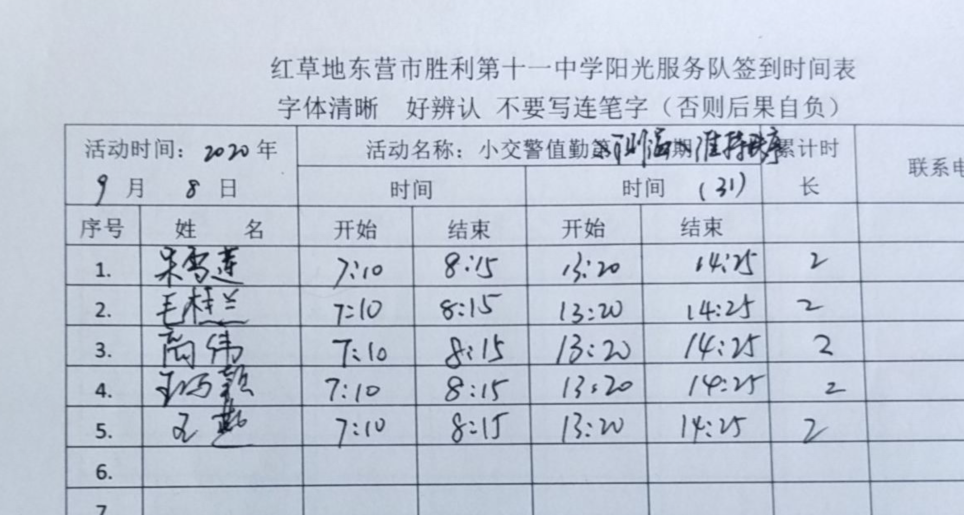 红草地东营市胜利第十一中学阳光服务队签到时间表
字体清晰 好辨认 不要写连笔字（否则后果自负）
活动时间：2020年 活动名称：小交警值勤 测温 维持秩序 累计时 联系电
9月 8日 时间 时间 (31) 长
序号 姓 名 开始 结束 开始 结束
1. 宋雪莲 7:10 8:15 13:20 14:25 2
2. 毛桂兰 7:10 8:15 13:20 14:25 2
3. 高伟 7:10 8:15 13:20 14:25 2
4. 7:10 8:15 13:20 14:25 2
5. 王燕 7:10 8:15 13:20 14:25 2
6.
7.